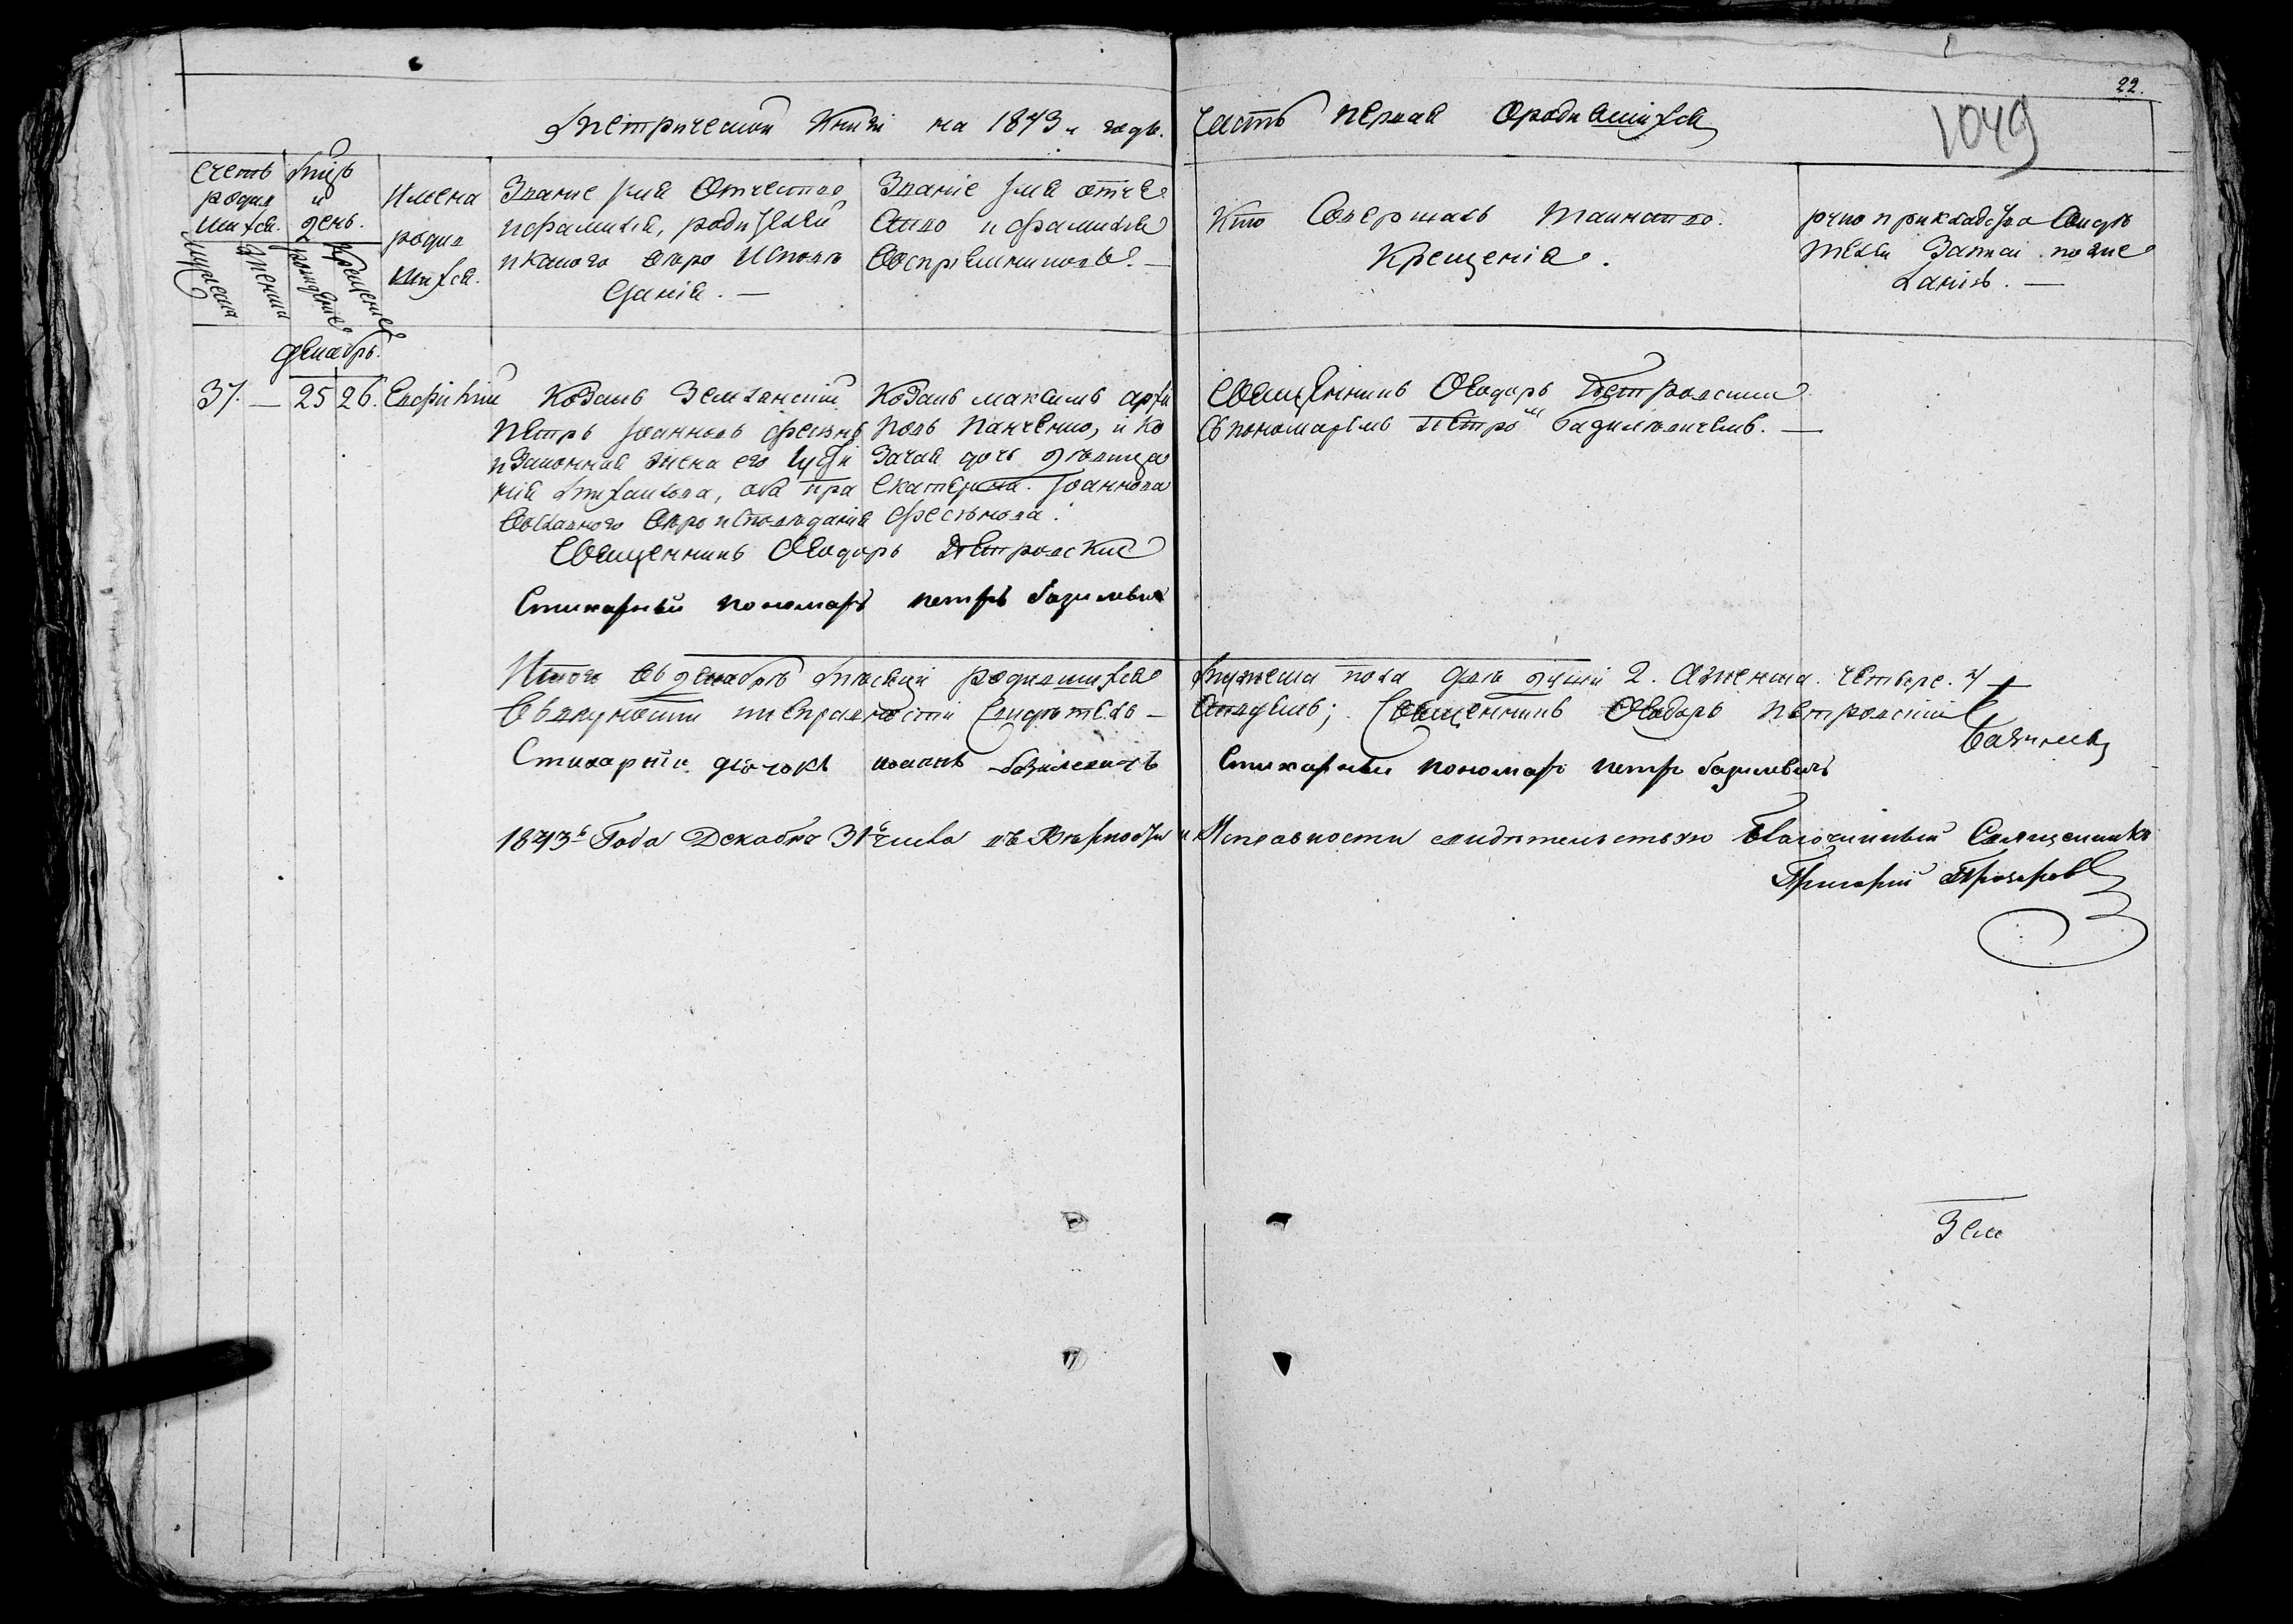 22.
1049
Метрической Книги на 1843й годъ.
Часть первая о родившихся
Счетъ родившихся.
Мужеска
Женска
Мѣсяцъ и день.
рожденія
крещенія
Имена родившихся.
Званіе имя отчество
и фамилія, родителей
и какого вѣро испове
данія. —
Званіе имя отче
ство и фамилія
воспріемниковъ. —
Кто совершалъ таинство
Крещенія.
рукоприкладство свидѣ
телей записи по же
ланію. —
Декабрь.
37. — 25 26. Евфимій
Козакъ
Петръ Іоанновъ
и законная жена его
Михайлова, оба пра
вославного вѣроисповеданія
Козакъ Максимъ архи
повъ Панченко, и ко
зачая дочь девица
Екатерина Іоаннова
Священникъ Феодоръ Петровскій
съ пономаремъ Петромъ Базилевичемъ. —
Священникъ Феодоръ Петровскій
Стихарный пономарь петръ базилевич
Итого въ декабрѣ месяце родившихся
мужеска пола двѣ души 2. а женска четыре. 4
въ верности и исправности свидѣтель—
ствуемъ; Священникъ Феодоръ Петровскій
Стихарный дьячокъ иоаннъ базилевичъ
Стихарный пономарь петръ базилевичъ
1843го Года Декабря 31го числа въ вѣрности и исправности свидѣтельствую Благочинный Священникъ
Григорій